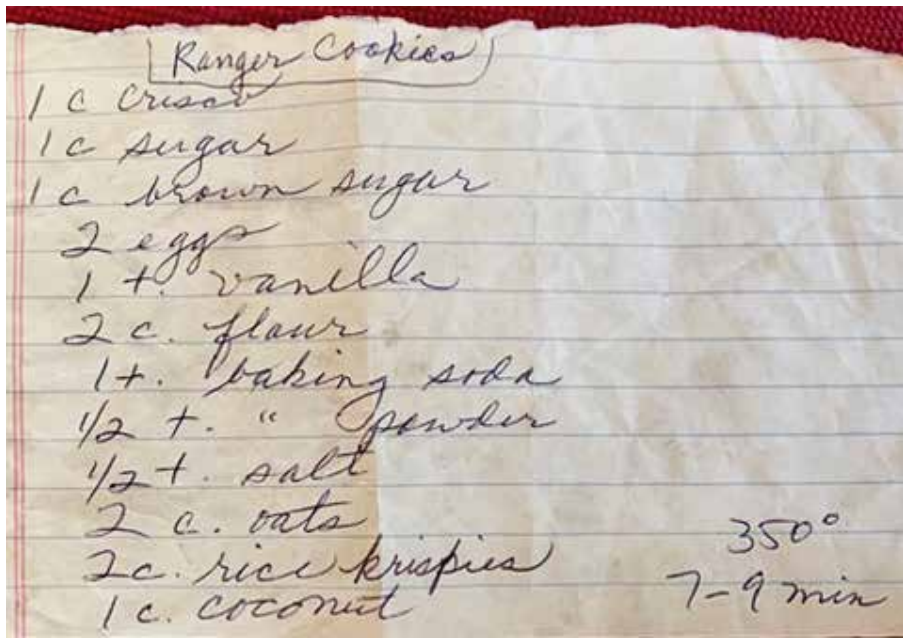 Ranger Cookies
1 c crisco
1 c sugar
1 c brown sugar
2 eggs
1 t. vanilla
2 c. flour
1 t. baking soda
1/2 t. " powder
1/2 t. salt
2 c. oats
2 c. rice krispies
1 c. coconut
350°
7-9 min